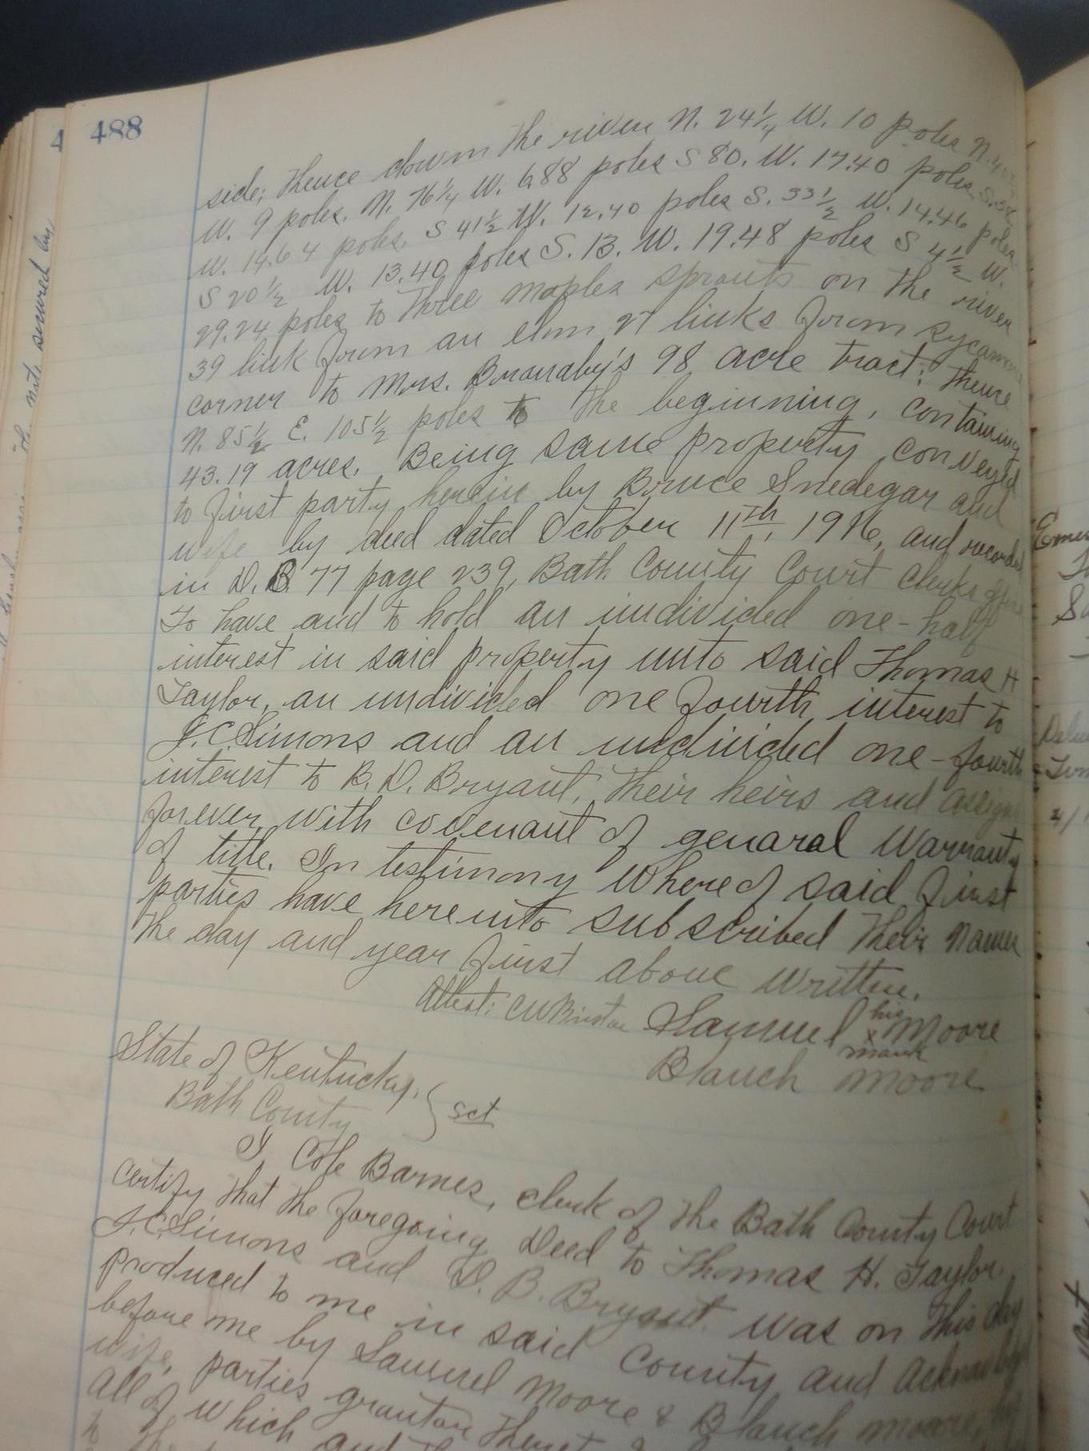 488
side; thence down the river N. 24¼ W. 10 poles N.
W. 9 poles. N. 76¼ W. 6.88 poles S 80. W. 17.40 poles. S.
W. 14.64 poles. S 41½ W. 12.40 poles S. 33½ W. 14.46 poles
S 20½ W. 13.40 poles S. 13. W. 19.48 poles S 4½ W.
29.24 poles to three maples sprouts on the river
39 link from an elm 27 links from sycamore
corner to Mrs. 98 acre tract; thence
N. 85½ E. 105½ poles to the beginning, containing
43.19 acres. Being same property conveyed
to first party herein by Bruce Snedegar and
wife by deed dated October 11th, 1916, and recorded
in D.B. 77 page 239, Bath County Court Clerks office
To have and to hold an undivided one-half
interest in said property unto said Thomas H
Taylor, an undivided one fourth interest to
J.C. Simons and an undivided one-fourth
interest to B. D. Bryant, their heirs and assigns
forever with covenant of general Warranty
of title. In testimony Whereof said first
parties have hereunto subscribed their names
the day and year first above written.
Attest: CW Samuel his x mark Moore
Blanch Moore
State of Kentucky,
Bath County } sct
I, Cole Barnes, clerk of the Bath County Court
certify that the foregoing Deed to Thomas H. Taylor,
J.C. Simons and D. B. Bryant was on this day
produced to me in said County and acknowledged
before me by Samuel Moore & Blanch moore, his
wife, parties grantor
All of which and
to
the note secured by